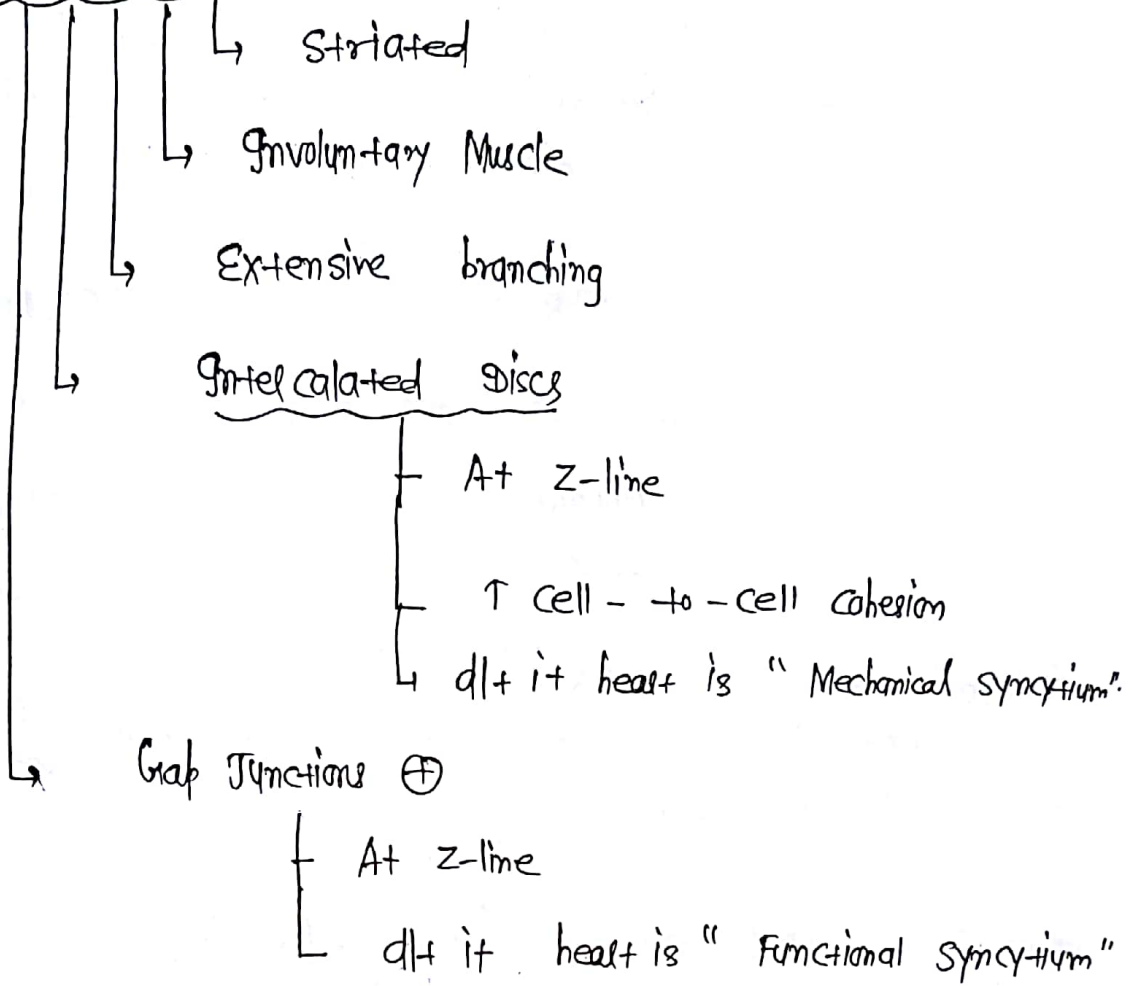 Striated
Involuntary Muscle
Extensive branching
Intercalated Discs
At Z-line
↑ cell - to - cell cohesion
d/t it heart is "Mechanical syncytium".
Gap Junctions ⊕
At Z-line
d/t it heart is "Functional syncytium"